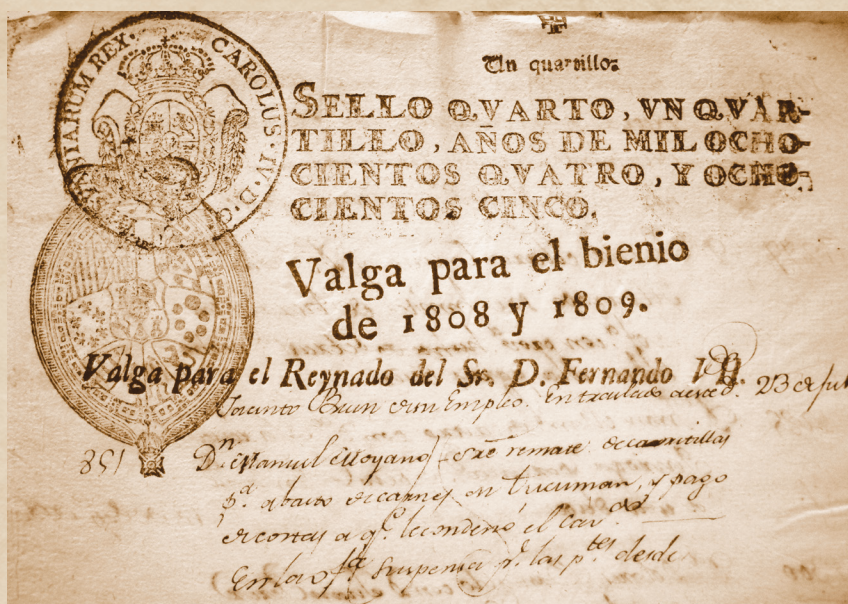 Un quartillo.
HISPANIARUM REX. CAROLUS. IV. D. G.
SELLO QVARTO, VN QVAR-
TILLO, AÑOS DE MIL OCHO-
CIENTOS QVATRO, Y OCHO-
CIENTOS CINCO.
Valga para el bienio
de 1808 y 1809.
Valga para el Reynado del Sr. D. Fernando VII.
Jacinto Empleo. 23 de Jul
158
Dn. Manuel Moyano sre remate de carretillas
pa. abasto de carnes en Tucuman, y pago
de costas a qe. le condenó el Cavdo
En la suspensa pr. las ptes desde